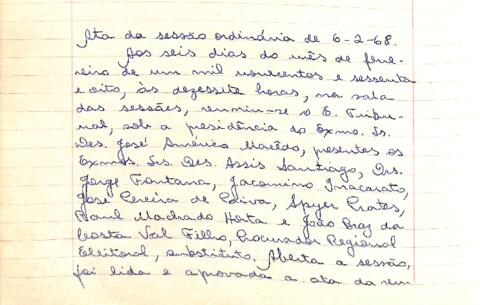 Ata da sessão ordinária de 6-2-68.
Aos seis dias do mês de feve-
reiro de um mil novecentos e sessenta
e oito, às dezessete horas, na sala
das sessões, reuniu-se o E. Tribu-
nal, sob a presidência do Exmo. Sr.
Des. José Américo Macêdo, presentes os
Exmos. Srs. Des. Assis Santiago, Drs.
Jorge Fontana, Jacomino Inacarato,
José Pereira de Paiva, Spyer Prates,
Raul Machado Horta e João Braz da
Costa Val Filho, Procurador Regional
Eleitoral, substituto. Aberta a sessão,
foi lida e aprovada a ata da reu